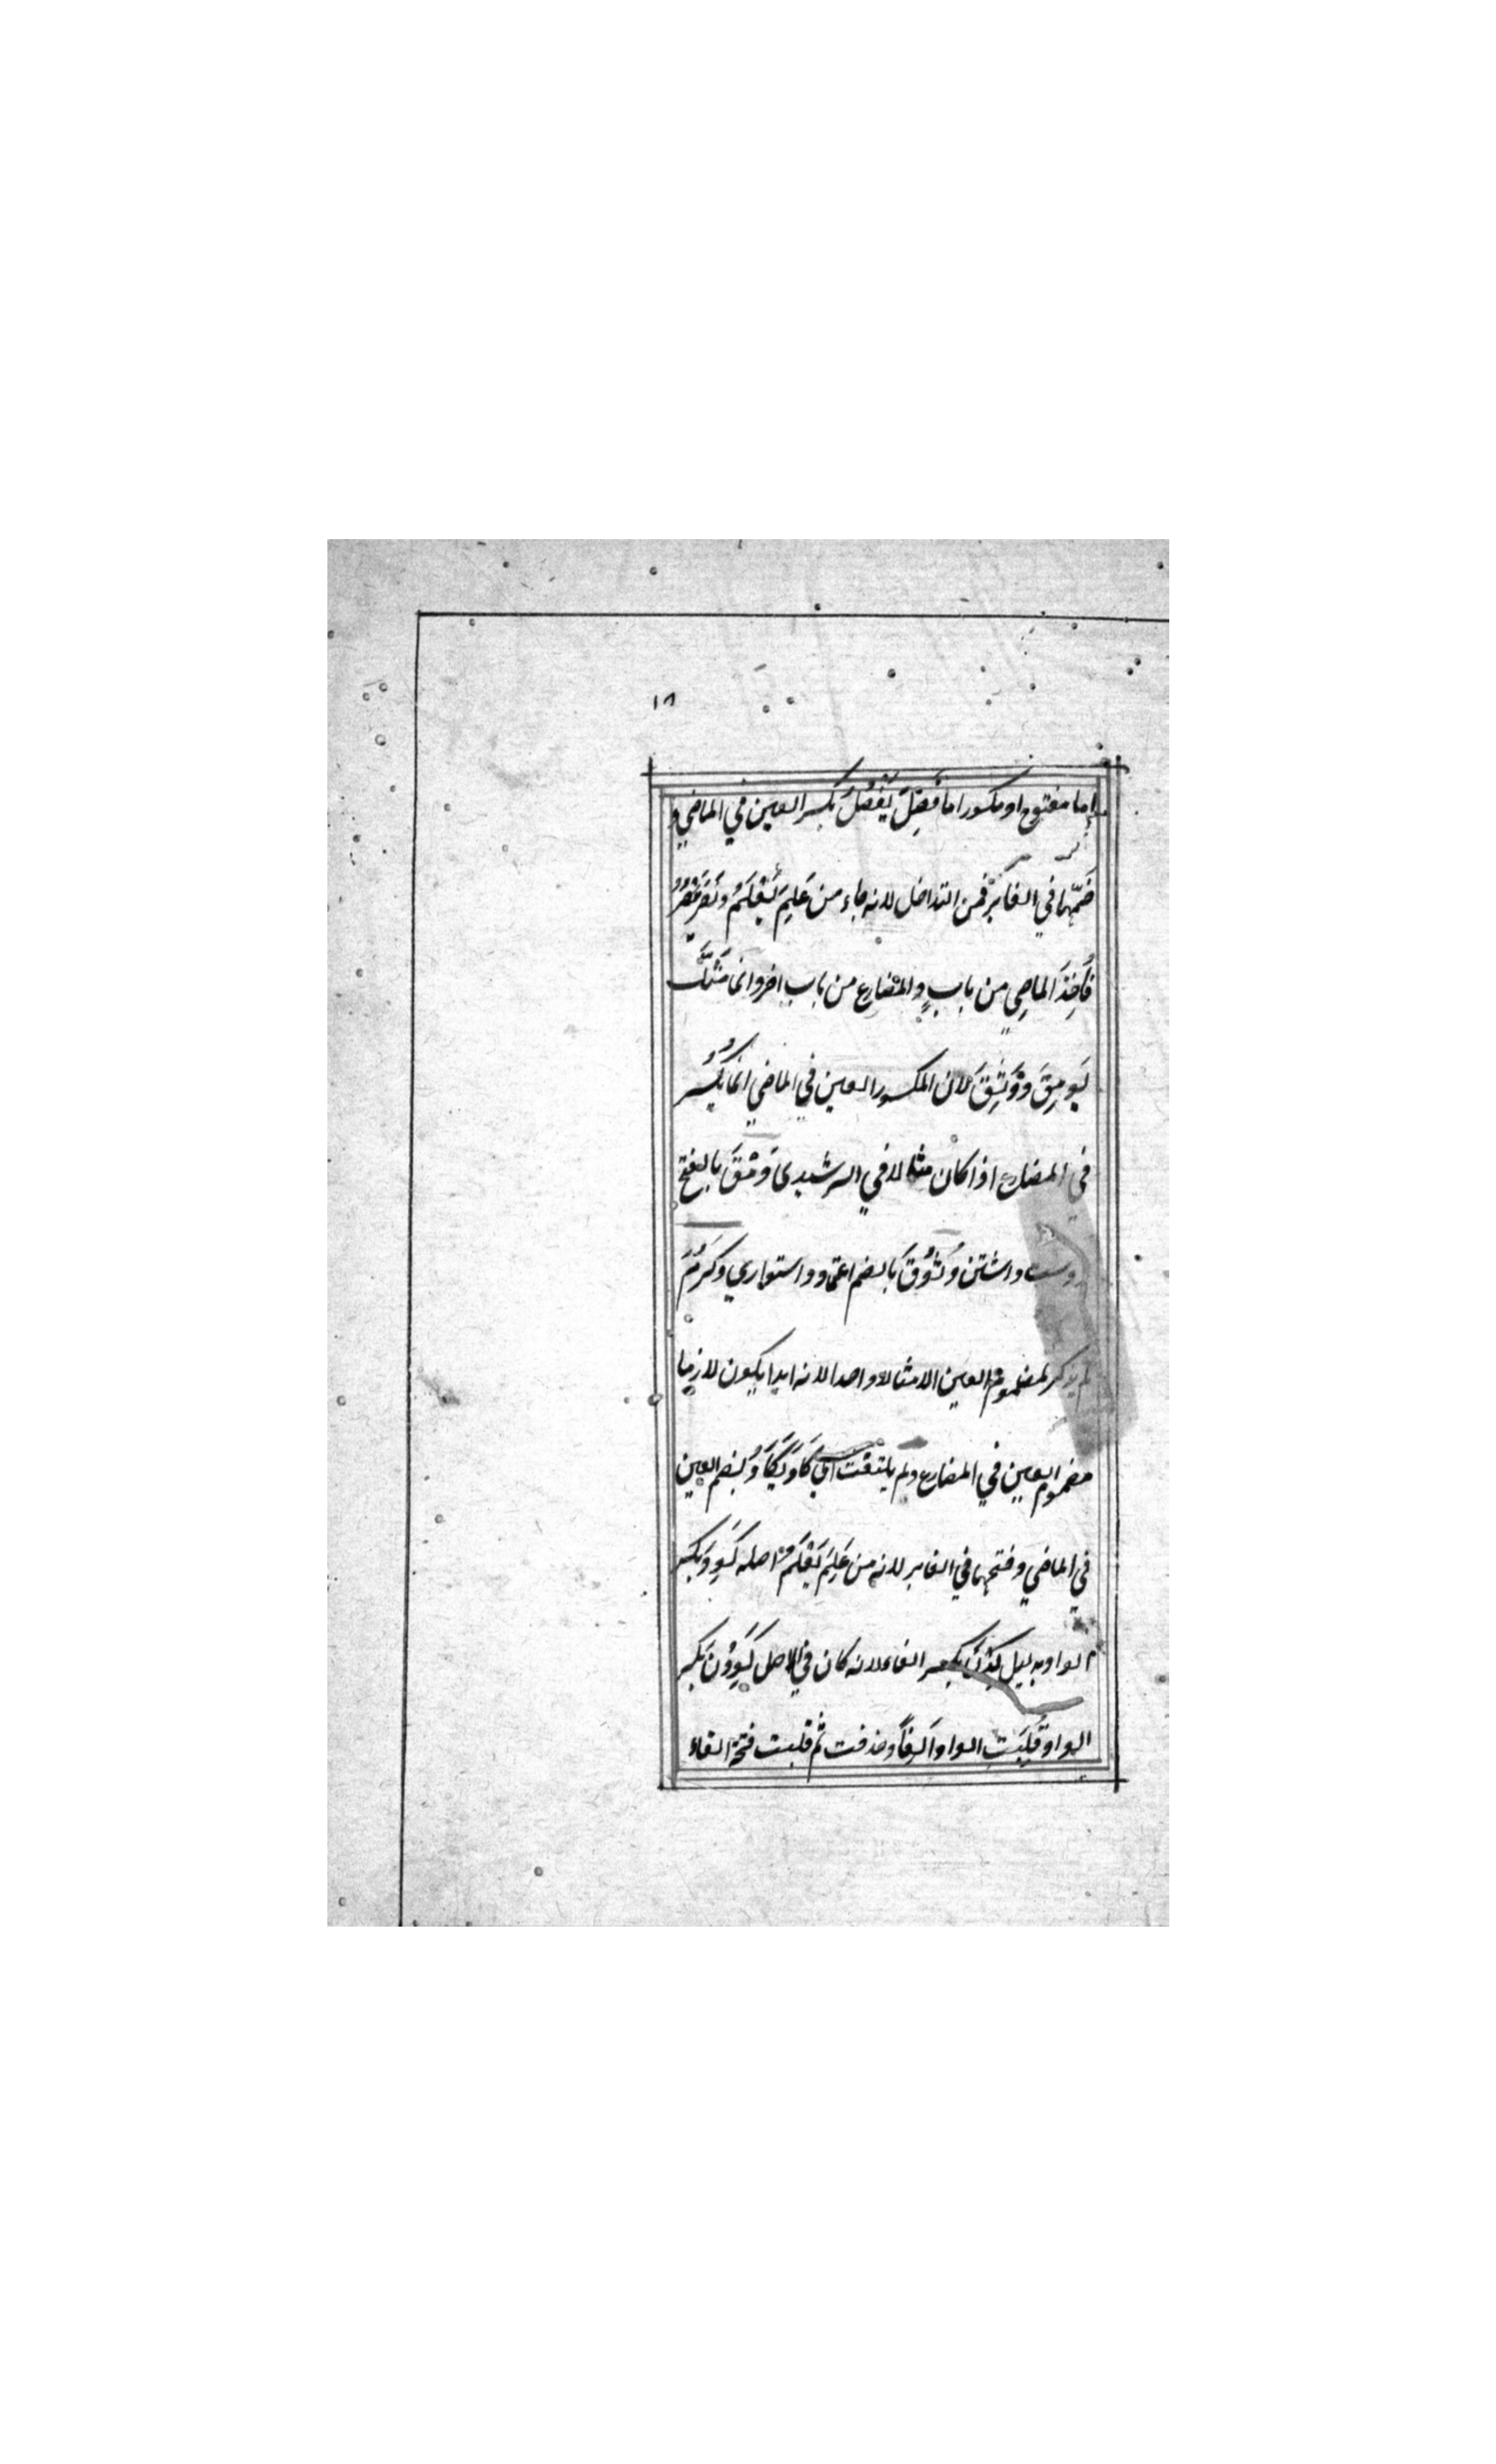 ١٨
اما مفتوح او مكسور اما فَضِلَ يَفْضُلُ بكسر العين في الماضي و
ضَمّها في الغابر فمن التداخل لانه جاء من عَلِمَ يَعْلَمُ ونَصَرَ يَنْصُرُ
فاُخِذَ الماضِي من بابٍ والمضارع من باب اخر وانما مَثَّلَ
بِوَمِقَ ووَثِقَ لان المكسور العين في الماضي انما يُكْسَر
في المضارع اذا كان مثالا في الرشيدى وَمْقَ بالفتح
دوست داشتن وَ وُثُوق بالضم اعتماد و استواري وكَرُمَ
لم يذكر لمضموم العين الا مثالا واحدا لانه ابدا يكون لازما
مضموم العين في المضارع ولم يلتفت الى كَادَ يَكَادُ بضم العين
في الماضي وفتحها في الغابر لانه من عَلِمَ يَعْلَمُ اصله كَوِدَ بكسر
الواو بدليل كِدْنَ بكسر الفاء لانه كان في الاصل كَوِدْنَ بكسر
الواو قُلِبَتِ الواو اَلِفًا وحذفت ثم قلبت فتحة الفاء